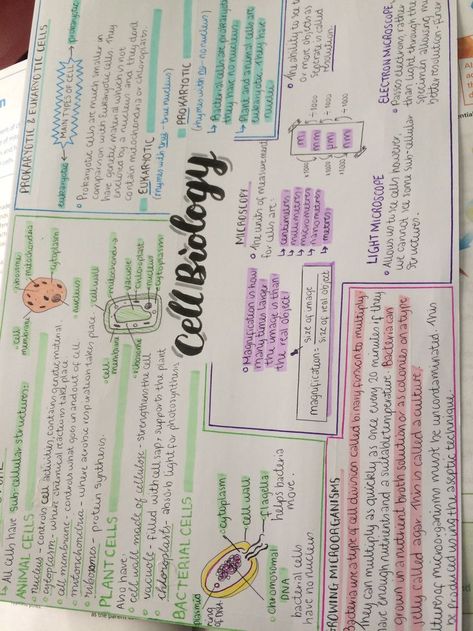 Cell Biology
All cells have sub cellular structures:
ANIMAL CELLS
nucleus - controls cell activities, contains genetic material
cytoplasm - where chemical reactions take place
cell membrane - controls what goes in and out of cell
mitochondria - where aerobic respiration takes place
ribosomes - protein synthesis.
ribosome
mitochondria
cytoplasm
nucleus
cell
membrane
PLANT CELLS
Also have:
cell wall made of cellulose - strengthens the cell
vacuole - filled with cell sap, supports the plant
chloroplasts - absorb light for photosynthesis
cell wall
mitochondria
vacuole
chloroplast
nucleus
cytoplasm
cell
membrane
ribosome
BACTERIAL CELLS
cytoplasm
cell wall
flagella
helps bacteria
move.
chromosomal
DNA
bacterial cells
have no nucleus
PROKARYOTIC & EUKARYOTIC CELLS
eukaryotic
MAIN TYPES OF CELLS
prokaryotic
Prokaryotic cells are much smaller in
comparison with Eukaryotic cells. They
have genetic material which is not
enclosed by a nucleus and they dont
contain mitochondria or chloroplasts.
EUKARYOTIC
(rhymes with tree - true nucleus)
PROKARYOTIC
(rhymes with no - no nucleus)
Bacterial cells are prokaryotic
they have no nucleus
Plant and animal cells are
eukaryotic, they have
nuclei
MICROSCOPY
The units of measurement
for cells are:
centimeters
millimeters
micrometers
nanometers
meters
Magnification is how
many times larger
the image is than
the real object
magnification =
size of image
size of real object
The ability to see two
or more objects as
seperate is called
resolution.
m
mm
µm
nm
÷1000
÷1000
÷1000
×1000
×1000
×1000
LIGHT MICROSCOPE
Allows us to see cells however,
we cannot see some sub-cellular
structures.
ELECTRON MICROSCOPE
Passes electrons rather
than light through the
specimen allowing much
better resolution.
GROWING MICROORGANISMS
Bacteria use a type of cell division called binary fission to multiply
they can multiply as quickly as once every 20 minutes if they
have enough nutrients and a suitable temperature. Bacteria can
grown in a nutrient broth solution or as colonies on a
jelly called agar. This is called a culture.
cultures of microorganisms must be uncontaminated. This
be produced using the aseptic technique.